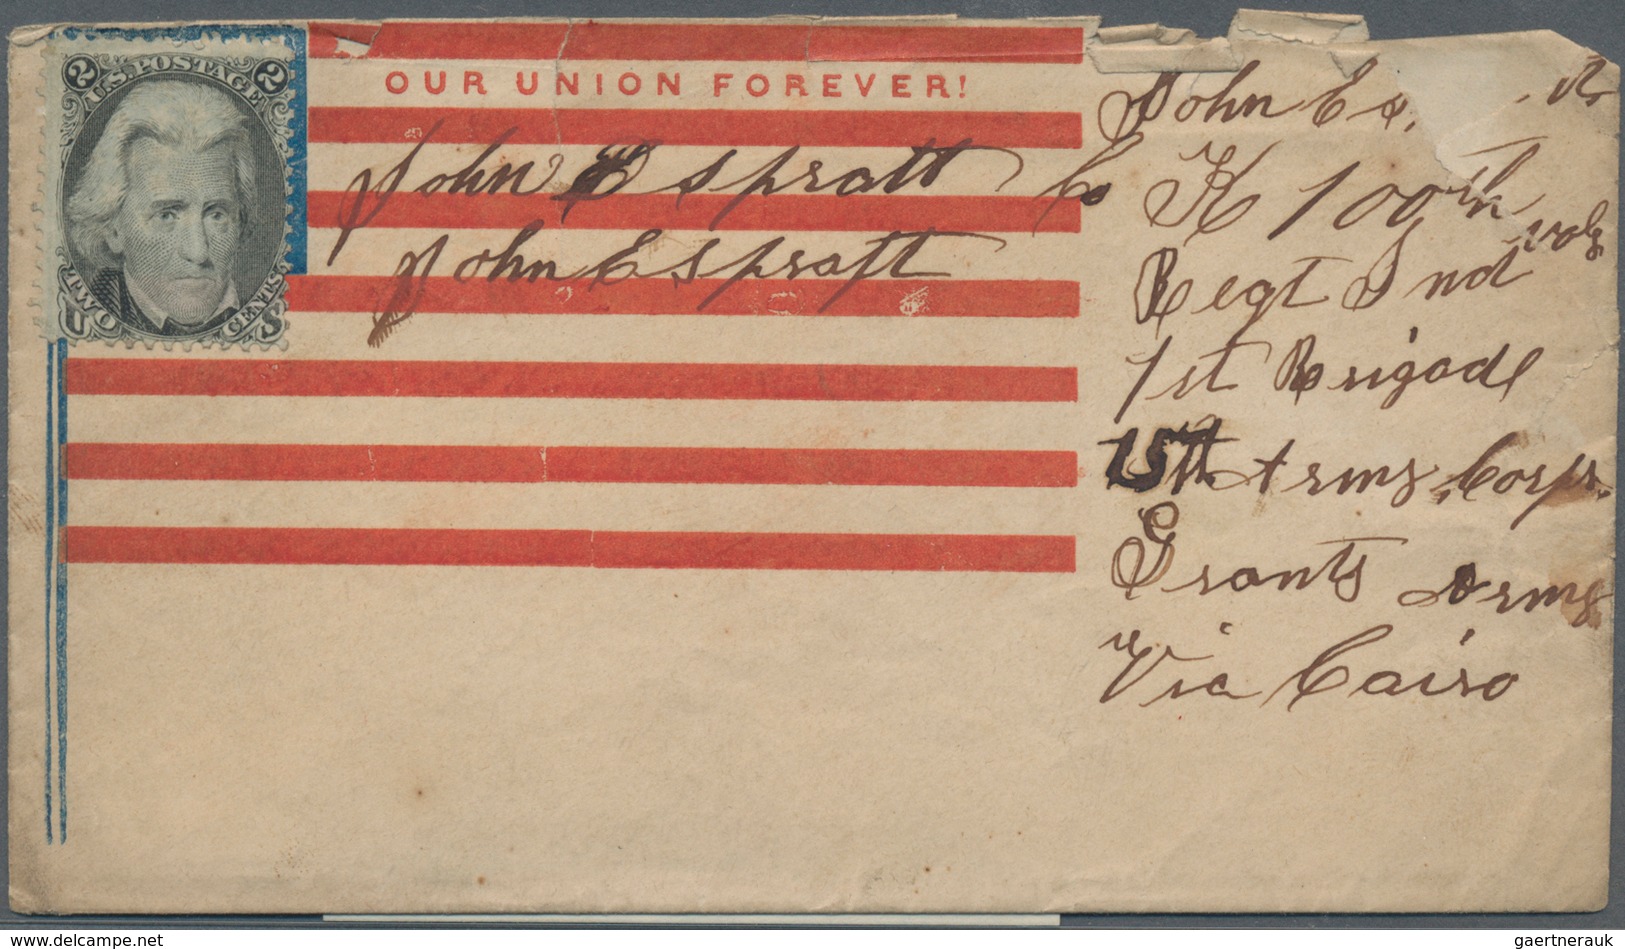 2 U.S. POSTAGE 2
TWO CENTS
U S
OUR UNION FOREVER!
John E Spratt
John E Spratt
John E
Co K 100th
Regt Ind vols
1st Brigade
15th Army Corps.
Grants Army
Via Cairo
www.delcampe.net
gaertnerauk